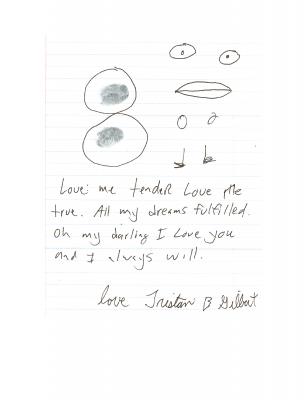 Love: me tender Love me
true. All my dreams fulfilled.
Oh my darling I Love you
and I always will.
love Tristan B Gilbert